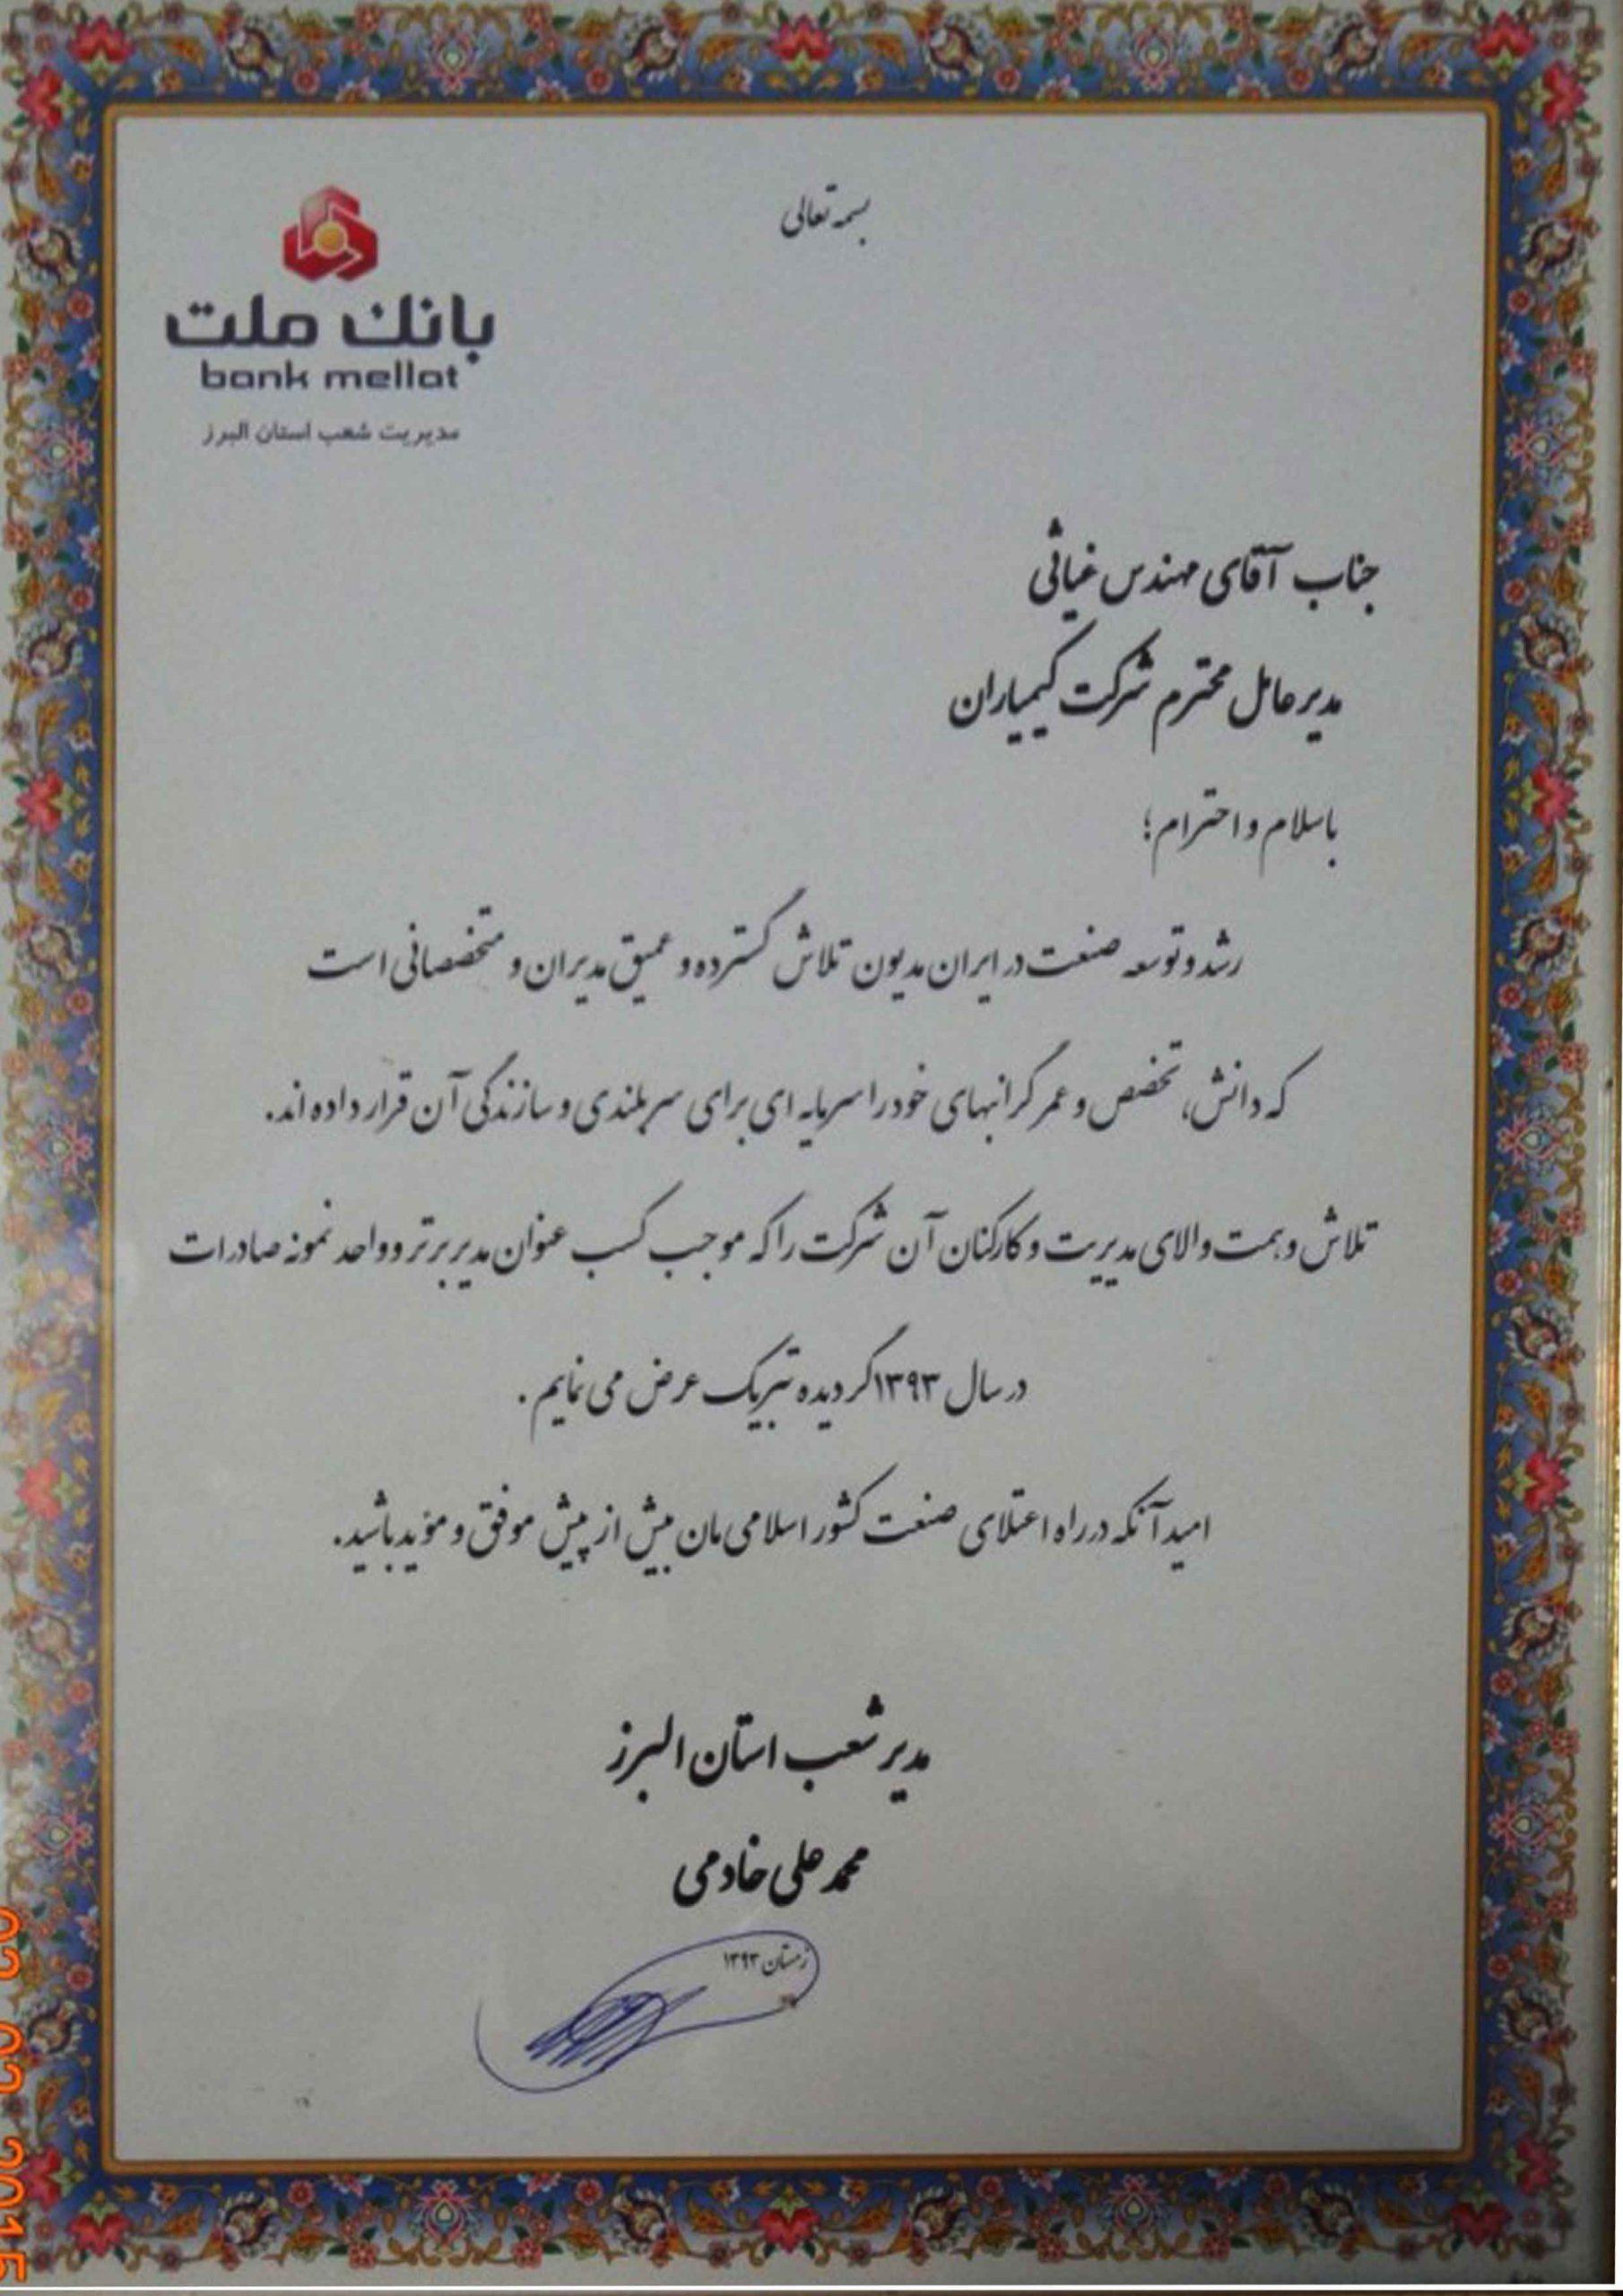 بسمه تعالی
بانک ملت
bank mellat
مدیریت شعب استان البرز
جناب آقای مهندس غیاثی
مدیرعامل محترم شرکت کیمیاران
باسلام و احترام؛
رشد و توسعه صنعت در ایران مدیون تلاش گسترده و عمیق مدیران و متخصصانی است
که دانش، تخصص و عمر گرانبهای خود را سرمایه ای برای سربلندی و سازندگی آن قرار داده اند.
تلاش و همت والای مدیریت و کارکنان آن شرکت را که موجب کسب عنوان مدیر برتر و واحد نمونه صادرات
در سال ۱۳۹۳ گردیده تبریک عرض می نمایم.
امید آنکه در راه اعتلای صنعت کشور اسلامی مان بیش از پیش موفق و مؤید باشید.
مدیر شعب استان البرز
محمد علی خادمی
زمستان ۱۳۹۳